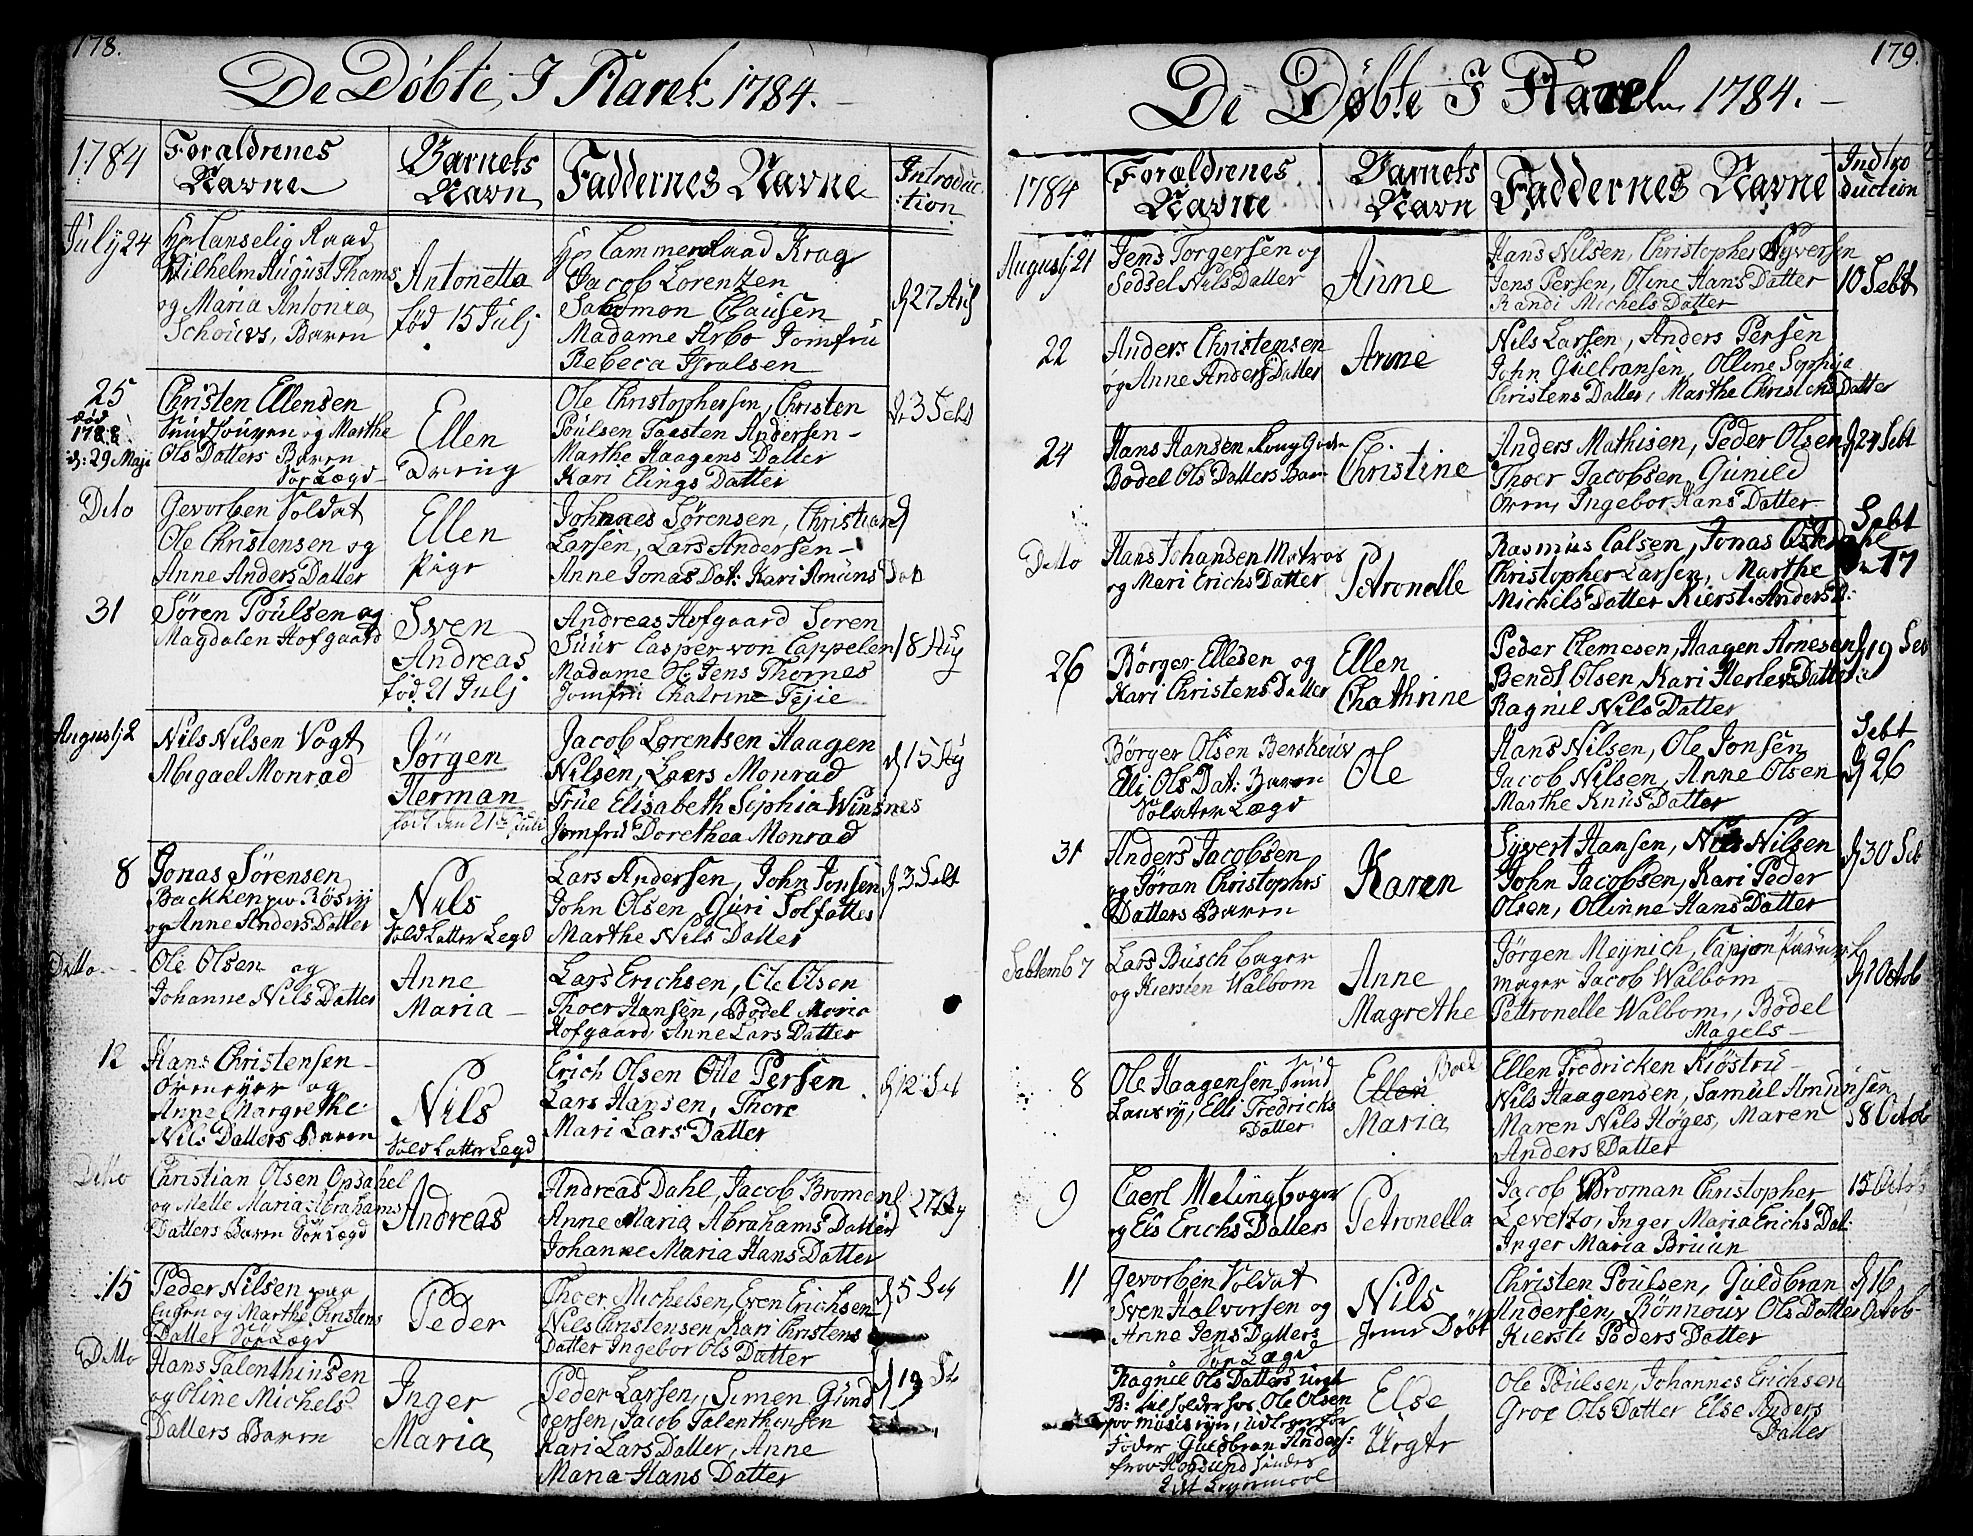 178.
De Döbte, I Aaret 1784.
1784
Foraldrenes Navne
Barnets Navn
Faddernes Navne
Introduc:tion
July 24
Hr Canselig Raad
Wilhelm August Thams
og Maria Antonia
Schouvs, Baren
Antonetta
fød 15 Julj
Hr Cammerraad Krag
Jacob Lorentzen
Salomon Clausen
Madame Arbo Jomfru
Rebeca Isralsen
d 27 Aug
25
død
1788
d: 29 Maji
Christen Ellensen
og Marthe
Ols Datters Baren
Sør Lægd
Ellen
Dreng
Ole Christophersen, Christen
Poulsen Taasten Andersen
Marthe Haagens Datter
Kari Elings Datter
d 3 Sebt
Ditto
Gevorben Soldat
Ole Christensen og
Anne Anders Datter
Ellen
Pige
Johnnes Sørensen, Christian
Larsen, Lars Andersen
Anne Jonas Dat: Kari Amuns Dat
31
Søren Poulsen og
Magdalen Hofgaard
Sven
Andreas
fød 21 Julj
Andreas Hofgaard Soren
Suur Casper von Cappelen
Madame H Jens Thornes
Jomfru Chatrine Tejie
18 Aug
Augustj 2
Nils Nilsen Vogt
Abigael Monrad
Jørgen
Herman
født den 21de Juli
Jacob Lorentsen Haagen
Nilsen, Laers Monrad
Frue Elisabeth Sophia Winsnes
Jomfru Dorethea Monrad
d 15 Aug
8
Jonas Sørensen
Backken paa Røsvij
og Anne Anders Datter
Nils
Sold Latter Legd
Lars Andersen, John Jonsen
John Olsen Guri Solfattes
Marthe Nils Datter
d 3 Sebt
Ditto
Ole Olsen og
Johanne Nils Datter
Anne
Maria
Lars Erichsen, Ole Olsen
Thoer Hansen, Bodel Maria
Hofgaard, Anne Lars Datter
12
Hans Christensen
og
Anne Margrethe
Nils Datters Baren
Nils
Sold Latter Legd
Erich Olsen Olle Persen
Lars Hansen, Thore
Mari Lars Datter
d 12 Seb
Ditto
Christian Olsen Opsahel
og Mette Maria Abrahams
Datters Baren Sør Lægd
Andreas
Andreas Dahl, Jacob Broman
Anne Maria Abrahams Datter
Johanne Maria Hans Datter
d 27 Aug
15
Peder Nilsen paa
og Marthe Christens
Datter Sør Lægd
Peder
Thoer Michelsen, Even Erichsen
Nils Christensen, Kari Christens
Datter Ingebor Ols Datter
d 5 Seb
Ditto
Hans Talenthinsen
og Oline Michels
Datters Baren
Inger
Maria
Peder Larsen, Simen Gund
dersen, Jacob Talenthinsen
Kari Lars Datter, Anne
Maria Hans Datter
d 19 Sb
179.
De Döbte I Aaret 1784.
1784
Foraldrenes Navne
Barnets Navn
Faddernes Navne
Indtroduction
Augustj 21
Jens Torgersen og
Sedsel Nils Datter
Anne
Hans Nilsen, Christopher Syversen
Jens Persen, Oline Hans Datter
Randi Michels Datter
10 Sebt
22
Anders Christensen
og Anne Anders Datter
Anne
Nils Larsen, Anders Persen
John Gulbransen, Olline Sophia
Christens Datter, Marthe Christens Datter
24
Hans Hansen
Bodel Ols Datters Barn
Christine
Anders Mathisen, Peder Olsen
Thoer Jacobsen Gunild
Orm, Ingebor Hans Datter
d 24 Sebt
Ditto
Hans Johansen Matros
og Mari Erichs Datter
Petronelle
Rasmus Calsen, Jonas
Christopher Larsen, Marthe
Michels Datter Kiersti Anders D:
Sebt
17
26
Börger Ellesen og
Kari Christens Datter
Ellen
Chathrine
Peder Clemesen, Haagen Arnesen
Bendt Olsen, Kari Herlevs Datter
Ragnil Nils Datter
d 19 Seb
Börger Olsen Berskouv
Elli Ols Dat: Baren
Solater Lægd
Ole
Hans Nilsen, Ole Jonsen
Jacob Nilsen, Anne Olsen
Marthe Knus Datter
Sebt
d 26
31
Anders Jacobsen
og Jöran Christophrs
Datters Baren
Karen
Syvert Hansen, Nils Nilsen
John Jacobsen, Kari Peder
Olsen, Ollinne Hans Datter
d 30 Seb
Sebtemb 7
Lars Busch bager
og Kiersten Walbom
Anne
Magrethe
Jørgen Meynich, Capjon
mager Jacob Walbom
Pettronelle Walbom, Bodel
Magels
d 1 Octob
8
Ole Haagensen Sund
Elli Fredrichs
Datter
Ellen Boel
Maria
Ellen Fredricken Kiöstru
Nils Haagensen, Samul Amunsen
Maren Nils Höges, Maren
Anders Datter
8 Octob
9
Caerl Meling bager
og Els Erichs Datter
Petronella
Jacob Broman Christopher
Levetzo, Inger Maria Erichs Dat:
Inger Maria Bruun
15 Octob
11
Gevorben Soldat
Sven Halvorsen og
Anne Jens Datters
Sør Lægd
Nils
Jeme Døbt
Christen Poulsen, Guldbran
Andersen, Rönnouv Ols Datter
Kiersti Peders Datter
d 16
Octob
Ragnil Ols Datters Uægt
B: hos Ole Olsen
paa
Fader Guldbran Anders:
fraa Hogsund
Else
Uægte
Ole Poulsen, Johannes Erichsen
Groe Ols Datter Else Anders
Datter